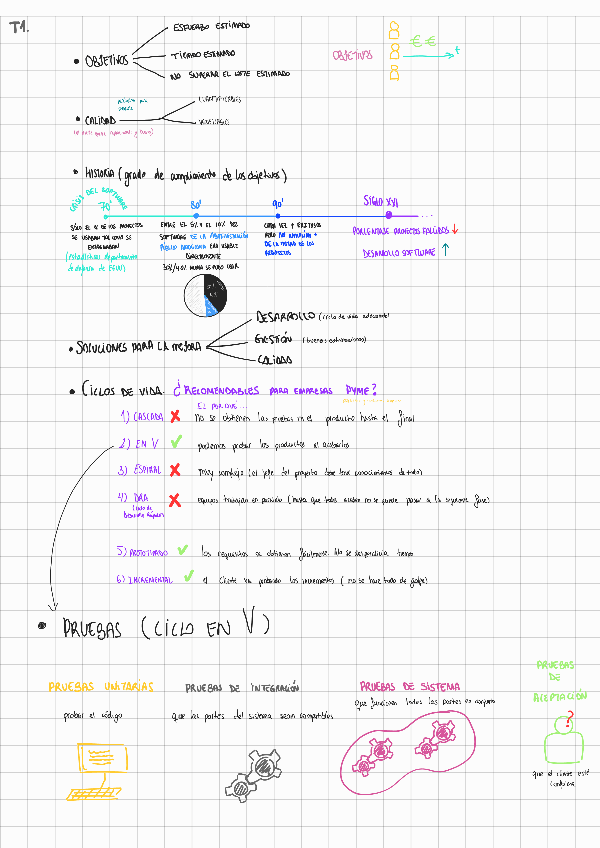 T1.
• OBJETIVOS
ESFUERZO ESTIMADO
TIEMPO ESTIMADO
NO SUPERAR EL COSTE ESTIMADO
OBJETIVOS
€ €
t
• CALIDAD
CUANTIFICABLES
• HISTORIA (grado de cumplimiento de los objetivos)
CRISIS DEL SOFTWARE
70'
80'
90'
SIGLO XXI
SÓLO EL DE LOS PROYECTOS
SE USABAN TAL COMO SE
ENTREGABAN
(estadísticas departamento
de defensa de EEUU)
ENTRE EL 5% Y EL 10% DEL
SOFTWARE DE LA ADMINISTRACIÓN
PÚBLICA AMERICANA ERA USABLE
DIRECTAMENTE
30%/40% NUNCA SE PUDO USAR
CADA VEZ + EXITOSOS
PERO NO
+ DE LA MITAD DE LOS
PROYECTOS
PORCENTAJE PROYECTOS FALLIDOS ↓
DESARROLLO SOFTWARE ↑
• SOLUCIONES PARA LA MEJORA
DESARROLLO (ciclo de vida adecuado)
GESTIÓN (buenas estimaciones)
CALIDAD
• CICLOS DE VIDA. ¿RECOMENDABLES PARA EMPRESAS PYME?
EL POR QUÉ ...
1) CASCADA ✗ No se obtienen las pruebas en el producto hasta el final
2) EN V ✓ podemos probar los productos al acabarlos
3) ESPIRAL ✗ muy complejo (el jefe del proyecto debe tener conocimientos de todo)
4) DRA ✗ equipos trabajan en paralelo (hasta que todos acaben no se puede pasar a la siguiente fase)
(Ciclo de
Desarrollo Rápido)
5) PROTOTIPADO ✓ los requisitos se obtienen fácilmente. No se desperdicia tiempo
6) INCREMENTAL ✓ el cliente va probando los incrementos (no se hace todo de golpe)
• PRUEBAS (CICLO EN V)
PRUEBAS UNITARIAS
probar el código
PRUEBAS DE INTEGRACIÓN
que las partes del sistema sean compatibles
PRUEBAS DE SISTEMA
que funcionen todas las partes en conjunto
PRUEBAS
DE
ACEPTACIÓN
?
que el cliente esté
contento